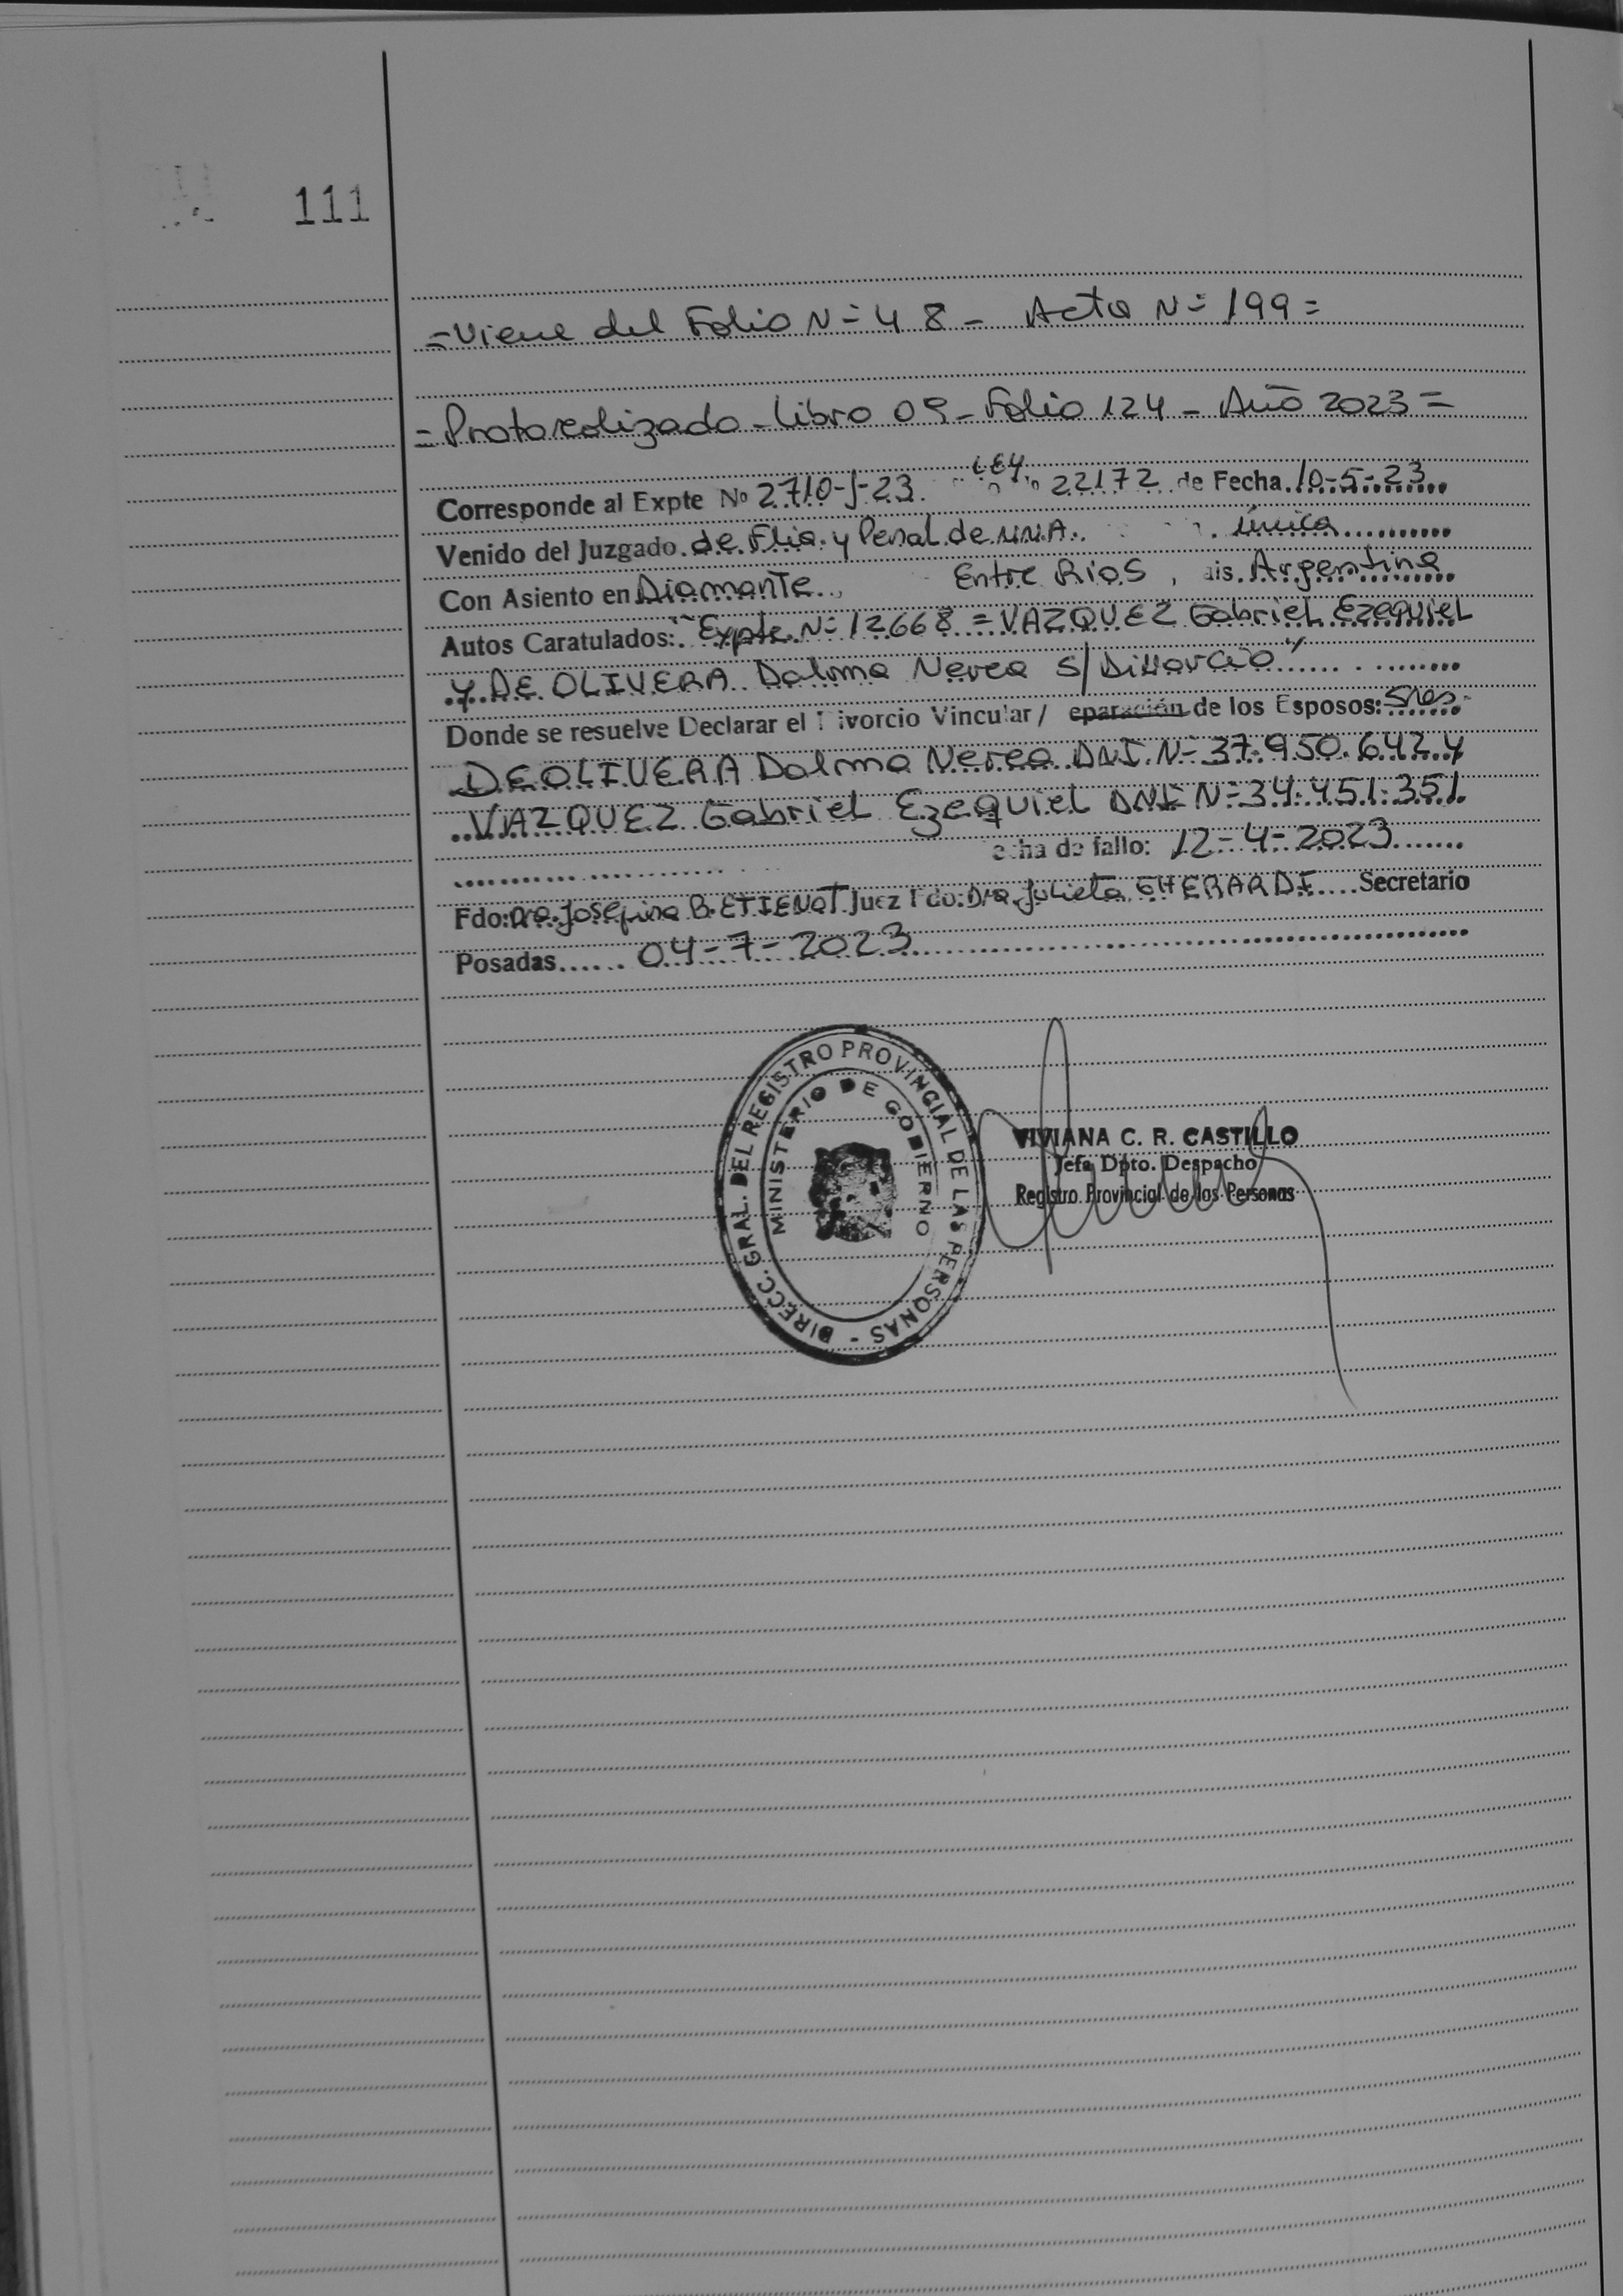 111
=Viene del Folio N=48- Acta N=199=
=Protocolizado-Libro 09-Folio 124-Año 2023=
Corresponde al Expte No 2710-J-23 LEY No 22172 de Fecha 10-5-23
Venido del Juzgado de Flia. y Penal de NNA. única
Con Asiento en Diamante Entre Rios, ais Argentina
Autos Caratulados: "Expte N=12668=VAZQUEZ Gabriel Ezequiel
y DE OLIVERA Dalma Nerea S/Divorcio"
Donde se resuelve Declarar el Divorcio Vincular/ eparación de los Esposos: Sres
DE OLIVERA Dalma Nerea DNI N=37.950.642 y
VAZQUEZ Gabriel Ezequiel DNI N=34.451.351
echa de fallo: 12-4-2023
Fdo: Dra. Josefina B. ETIENOT Juez Fdo: Dra. Julieta GHERARDI Secretario
Posadas 04-7-2023
DIRECC. GRAL. DEL REGISTRO PROVINCIAL DE LAS PERSONAS -
MINISTERIO DE GOBIERNO
VIVIANA C. R. CASTILLO
Jefa Dpto. Despacho
Registro Provincial de las Personas